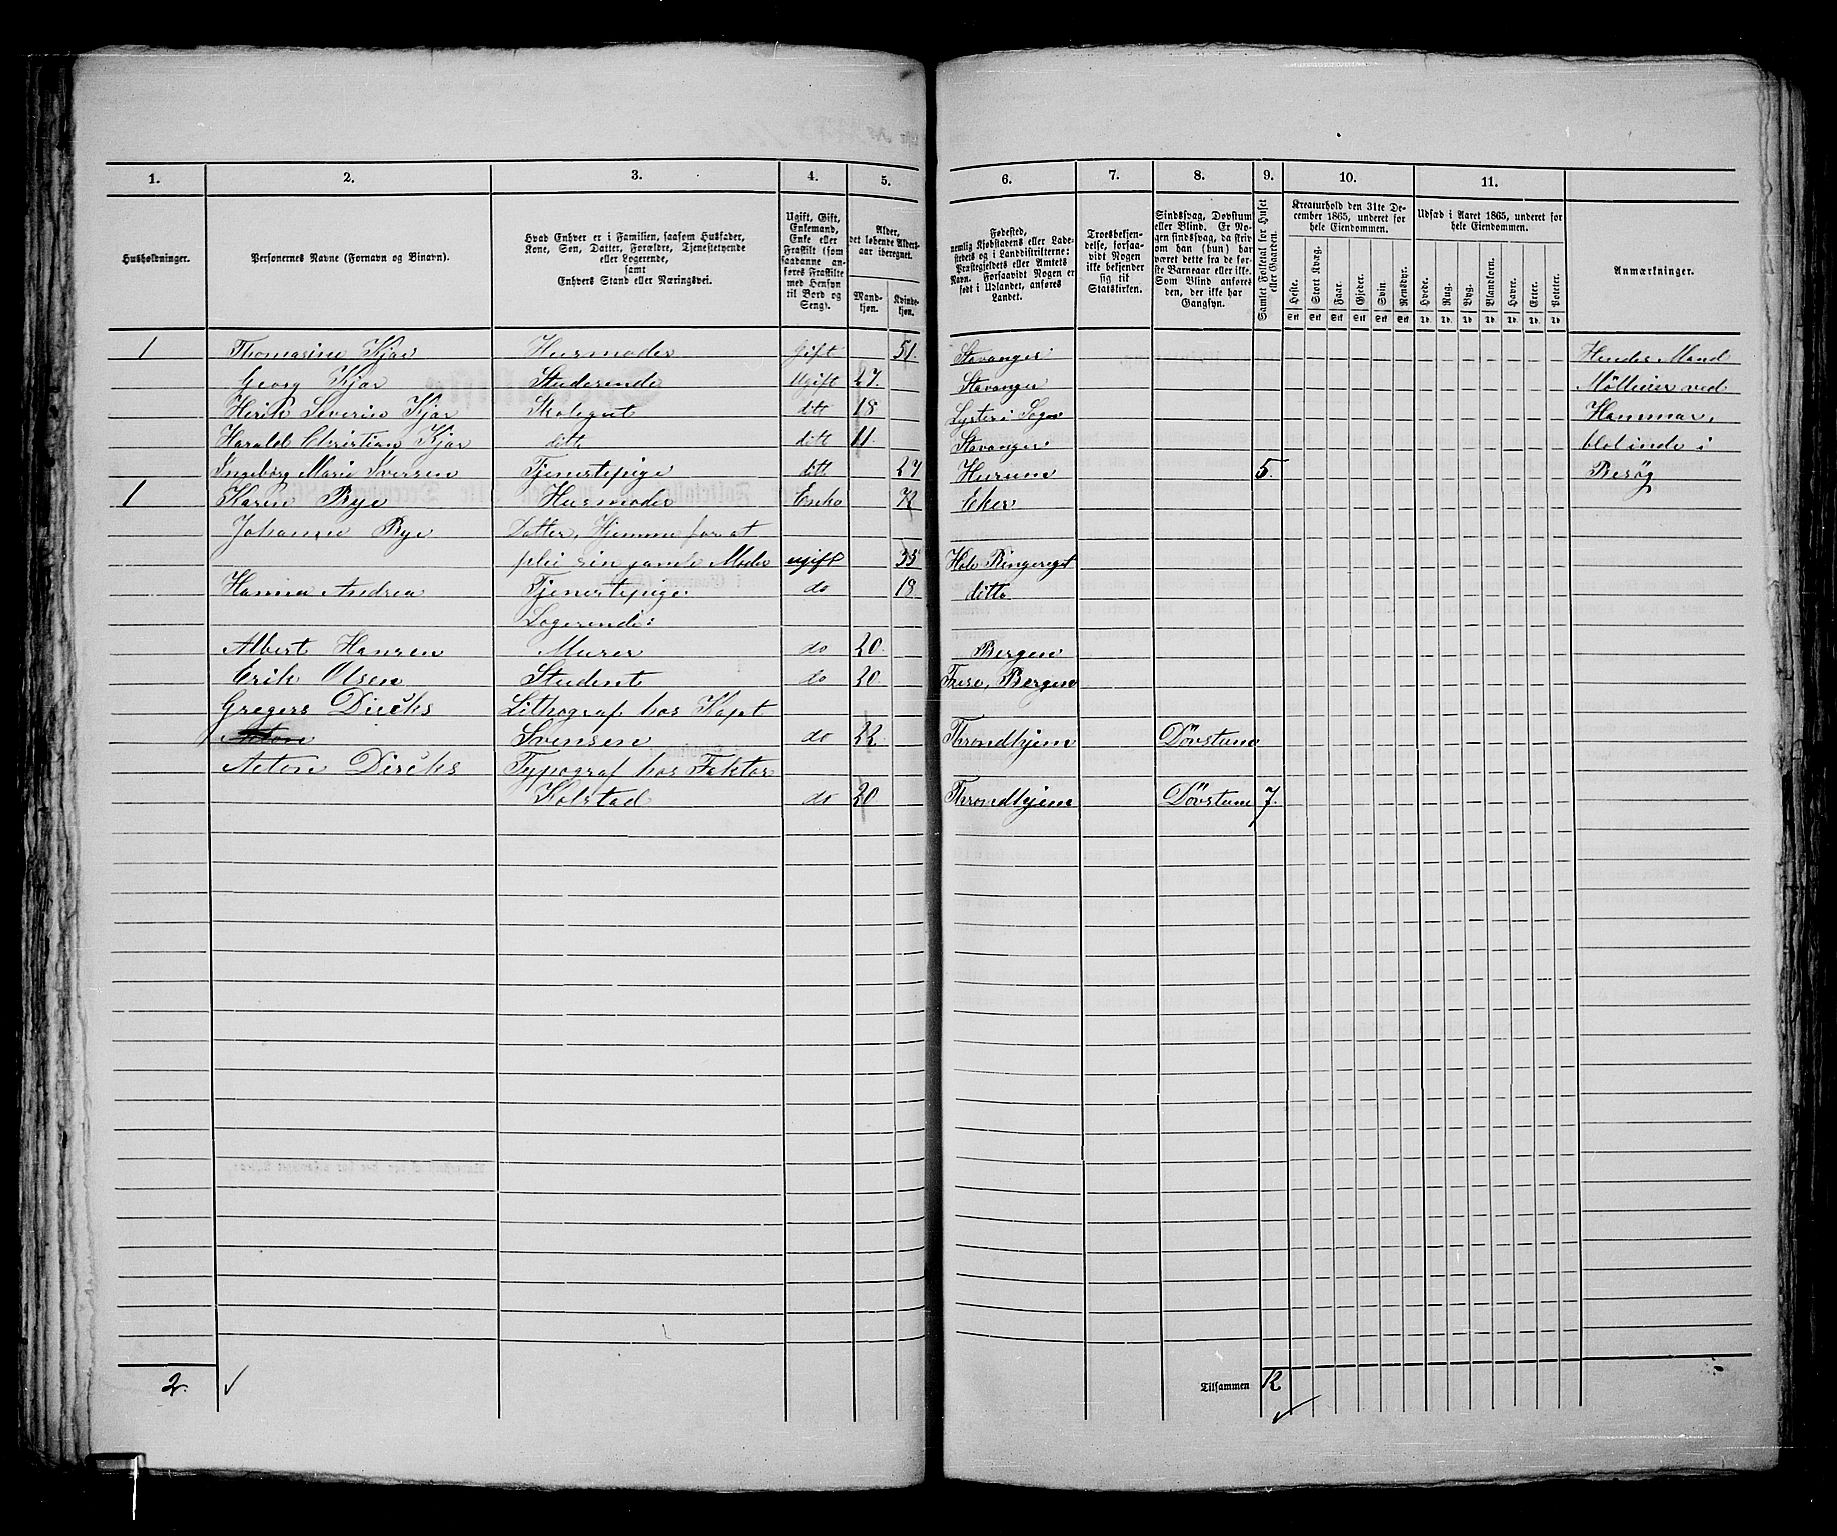 1. 2. 3. 4. 5. 6. 7. 8. 9. 10. 11.
Husholdninger.
Personernes Navne (Fornavn og Binavn).
Hvad Enhver er i Familien, saasom Husfader,
Kone, Søn, Datter, Forældre, Tjenestetyende
eller Logerende,
samt
Enhvers Stand eller Næringsvei.
Ugift, Gift,
Enkemand,
Enke eller
Fraskilt (som
saadanne an-
føres Fraskilte
med Hensyn
til Bord og
Seng).
Alder,
det løbende Alders-
aar iberegnet.
Mand-
kjøn.
Kvinde-
kjøn.
Fødested,
nemlig Kjøbstadens eller Lade-
stedets og i Landdistrikterne:
Præstegjeldets eller Amtets
Navn. Forsaavidt Nogen er
født i Udlandet, anføres
Landet.
Troesbekjen-
delse, forsaa-
vidt Nogen
ikke bekjender
sig til
Statskirken.
Sindssvag, Døvstum
eller Blind. Er No-
gen sindssvag, da skriv
om han (hun) har
været dette fra de før-
ste Barneaar eller ikke.
Som Blind anføres
den, der ikke har
Gangsyn.
Samlet Folketal for Huset
eller Gaarden.
Kreaturhold den 31te De-
cember 1865, underet for
hele Eiendommen.
Heste. Stort Kvæg. Faar. Gjeder. Svin. Rensdyr.
Udsæd i Aaret 1865, underet for
hele Eiendommen.
Hvede. Rug. Byg. Blandkorn. Havre. Erter. Poteter.
Anmærkninger.
1 Thomasine Kjær Husmoder Gift 51. Stavanger Hendes Mand
Georg Kjær Studerende Ugift 27. Stavanger Møllier ved
Herik Severin Kjær Skolegut dtt 18 Lyster i Sogn Hammar,
Harald Christian Kjær ditto ditt 11. Stavanger blot inde i
Ingeborg Marie Iversen Tjenestepige ditt 27 Hurum 5. Besøg
1 Karen Bye Husmoder Enke 72 Eker
Johanne Bye Datter, Hjemme for at
pleie sin gamle Moder ugift 35 Hole Ringeriget
Hanna Andrea Tjenestepige do 18 ditto
Logerende:
Albert Hansen Murer do 20. Bergen
Erik Olsen Student do 20 Bergen
Gregers Diecks Lithograf hos Kapt
Svensen do 22. Throndhjem Døvstum
Anton Diecks Typograf hos Faktor
Kolstad do 20 Throndhjem Døvstum 7.
2.
Tilsammen 12